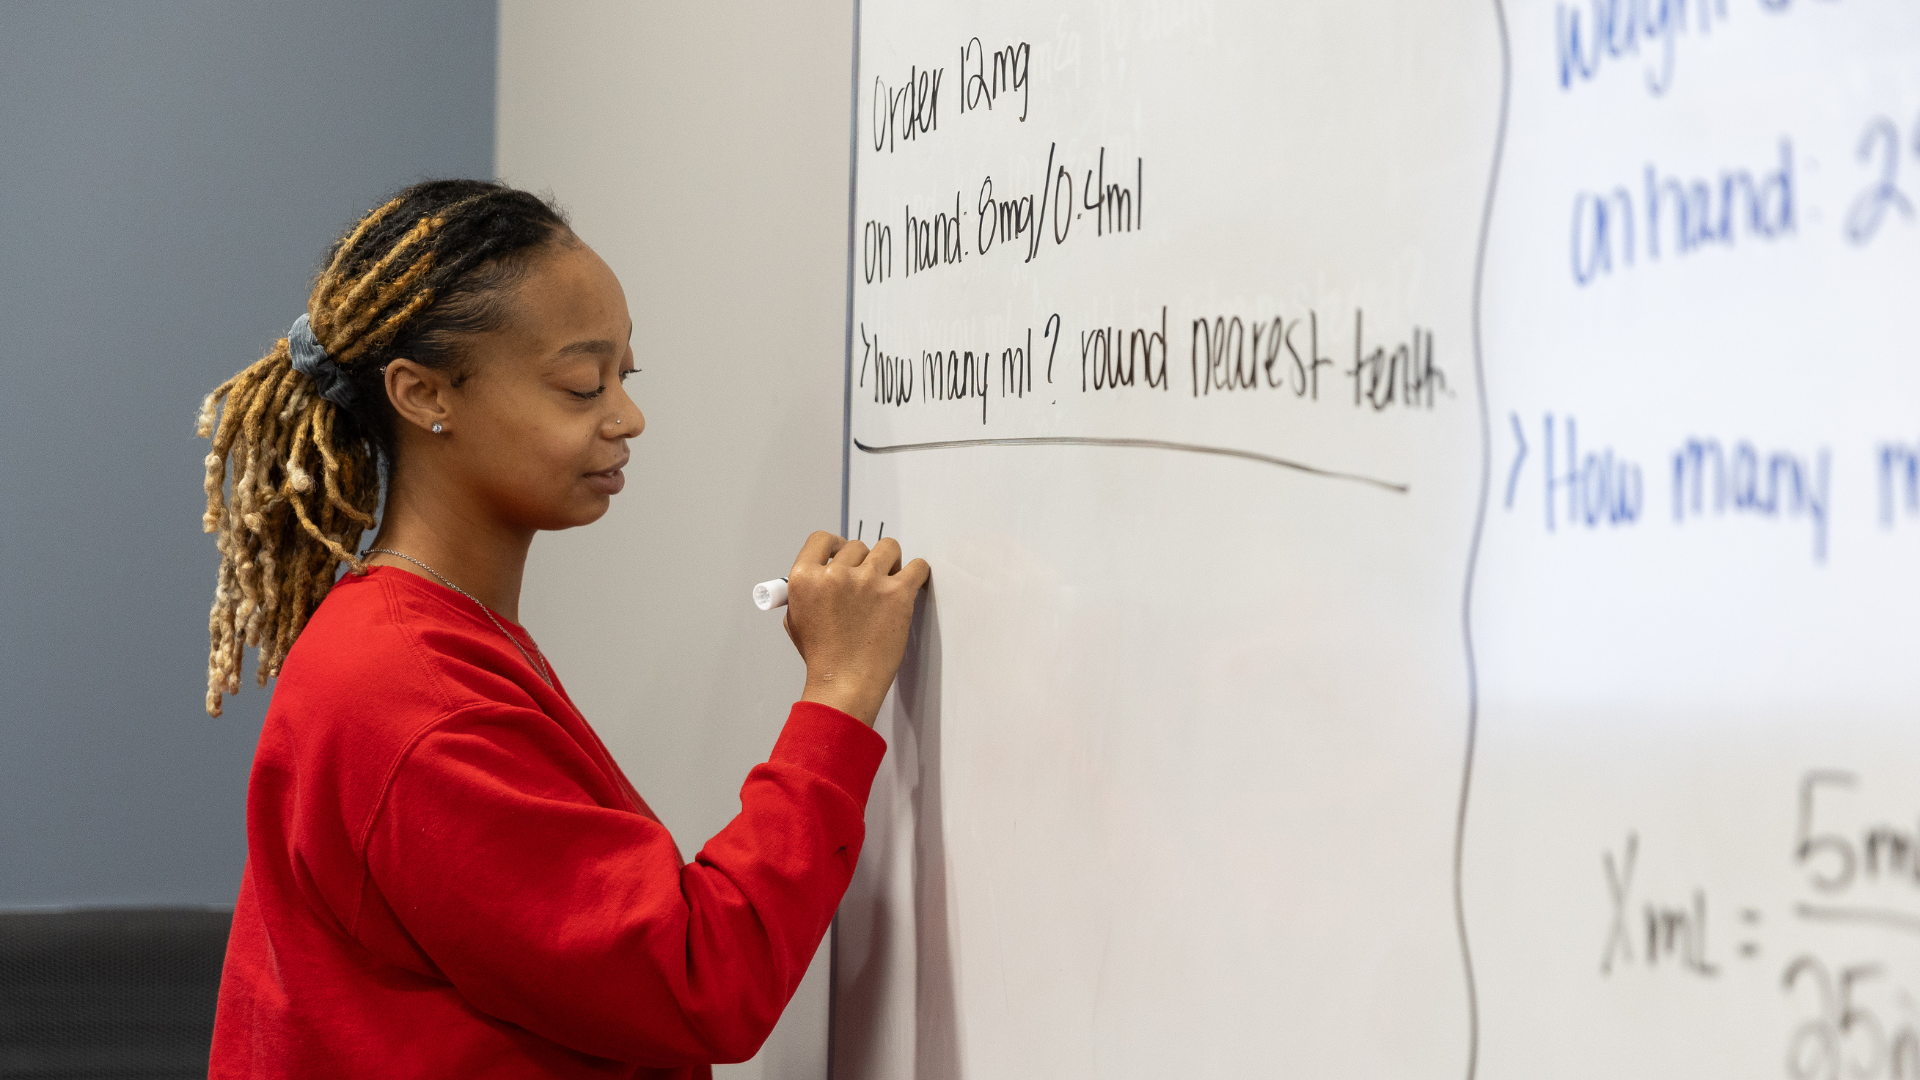 order 12mg
on hand: 8mg/0.4ml
>how many ml? round nearest tenth.
weight
on hand: 2
>How many m
XmL = 5m
25